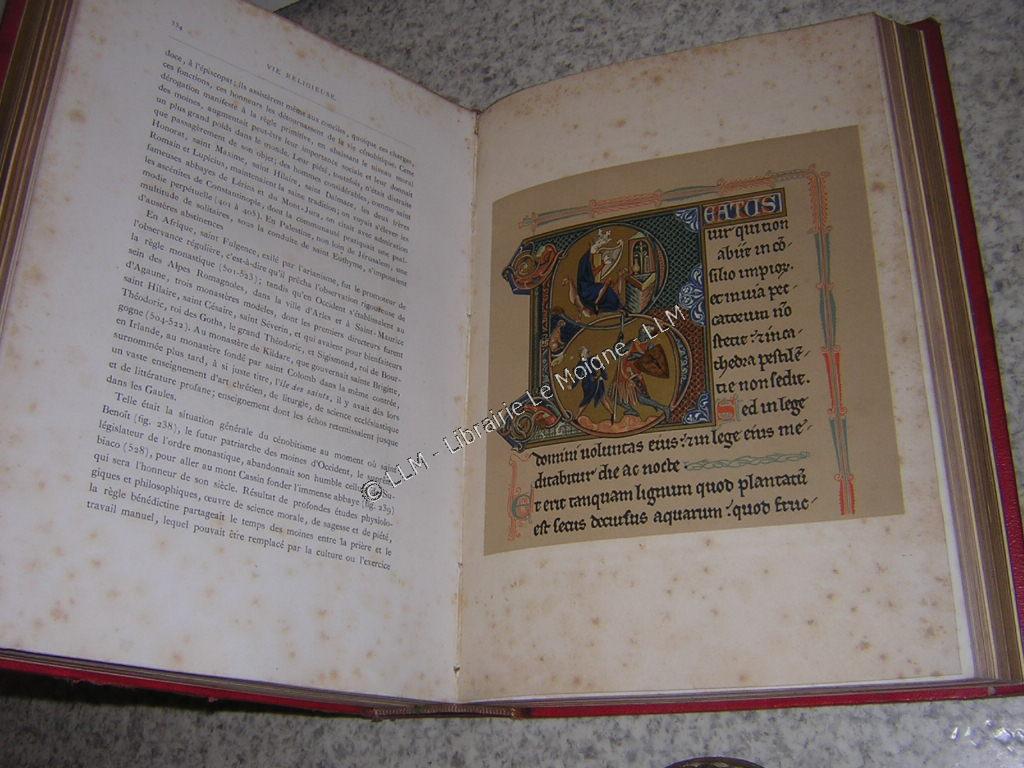 334
VIE RELIGIEUSE
doce, à l'épiscopat; ils assistèrent même aux conciles, quoique ces charges,
ces fonctions, ces honneurs les détournassent de la vie cénobitique. Cette
dérogation manifeste à la règle primitive, en abaissant le niveau moral
des moines, augmentait peut-être leur importance sociale et leur donnait
un plus grand poids dans le monde. Leur piété, toutefois, n'était distraite
que passagèrement de son objet; des hommes considérables, comme saint
Honorat, saint Maxime, saint Hilaire, saint Dalmace, les deux frères
Romain et Lupicius, maintenaient la saine tradition; on voyait s'élever les
fameuses abbayes de Lérins et du Mont-Jura, on citait avec admiration
les ascénites de Constantinople, dont la communauté pratiquait une psal-
modie perpétuelle (401 à 405). En Palestine, non loin de Jérusalem, une
multitude de solitaires, sous la conduite de saint Euthyme, s'imposaient
d'austères abstinences
En Afrique, saint Fulgence, exilé par l'arianisme, fut le promoteur de
l'observance régulière, c'est-à-dire qu'il prêcha l'observation rigoureuse de
la règle monastique (501-523); tandis qu'en Occident s'établissaient au
sein des Alpes Romagnoles, dans la ville d'Arles et à Saint-Maurice
d'Agaune, trois monastères modèles, dont les premiers directeurs furent
saint Hilaire, saint Césaire, saint Séverin, et qui avaient pour bienfaiteurs
Théodoric, roi des Goths, le grand Théodoric, et Sigismond, roi de Bour-
gogne (504-522). Au monastère de Kildare, que gouvernait sainte Brigitte,
en Irlande, au monastère fondé par saint Colomb dans la même contrée,
surnommée plus tard, à si juste titre, l'île des saints, il y avait dès lors
un vaste enseignement d'art chrétien, de liturgie, de science ecclésiastique
et de littérature profane; enseignement dont les échos retentissaient jusque
dans les Gaules.
Telle était la situation générale du cénobitisme au moment où saint
Benoît (fig. 238), le futur patriarche des moines d'Occident, le
législateur de l'ordre monastique, abandonnait son humble
biaco (528), pour aller au mont Cassin fonder l'immense abbaye (fig. 239)
qui sera l'honneur de son siècle. Résultat de profondes études physiolo-
giques et philosophiques, œuvre de science morale, de sagesse et de piété,
la règle bénédictine partageait le temps des moines entre la prière et le
travail manuel, lequel pouvait être remplacé par la culture ou l'exercice
BEATUS
uir qui non
abiit in cō-
silio impior.
et in uia pec-
catorum nō
stetit: in ca-
thedra pestilē-
tie non sedit.
Sed in lege
domini uoluntas eius: in lege eius me-
ditabitur die ac nocte
Et erit tanquam lignum quod plantatū
est secus decursus aquarum: quod fruc-
© LLM - Librairie Le Moigne - LLM